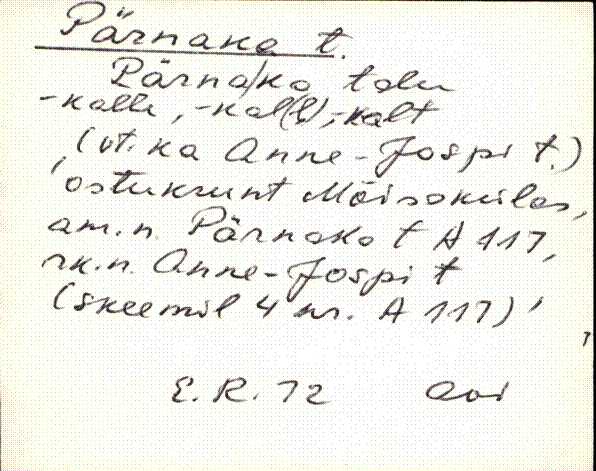 Pärnaka t.
Pärna/ka talu
-kalle, -kal(l), -kalt
(vt. ka Anne-Jospi t.)
ostukrunt Mõisakülas,
am.n. Pärnaka t A 117,
rk.n. Anne-Jospi t
(skeemil 4 nr. A 117)
E.R. 72 Avi